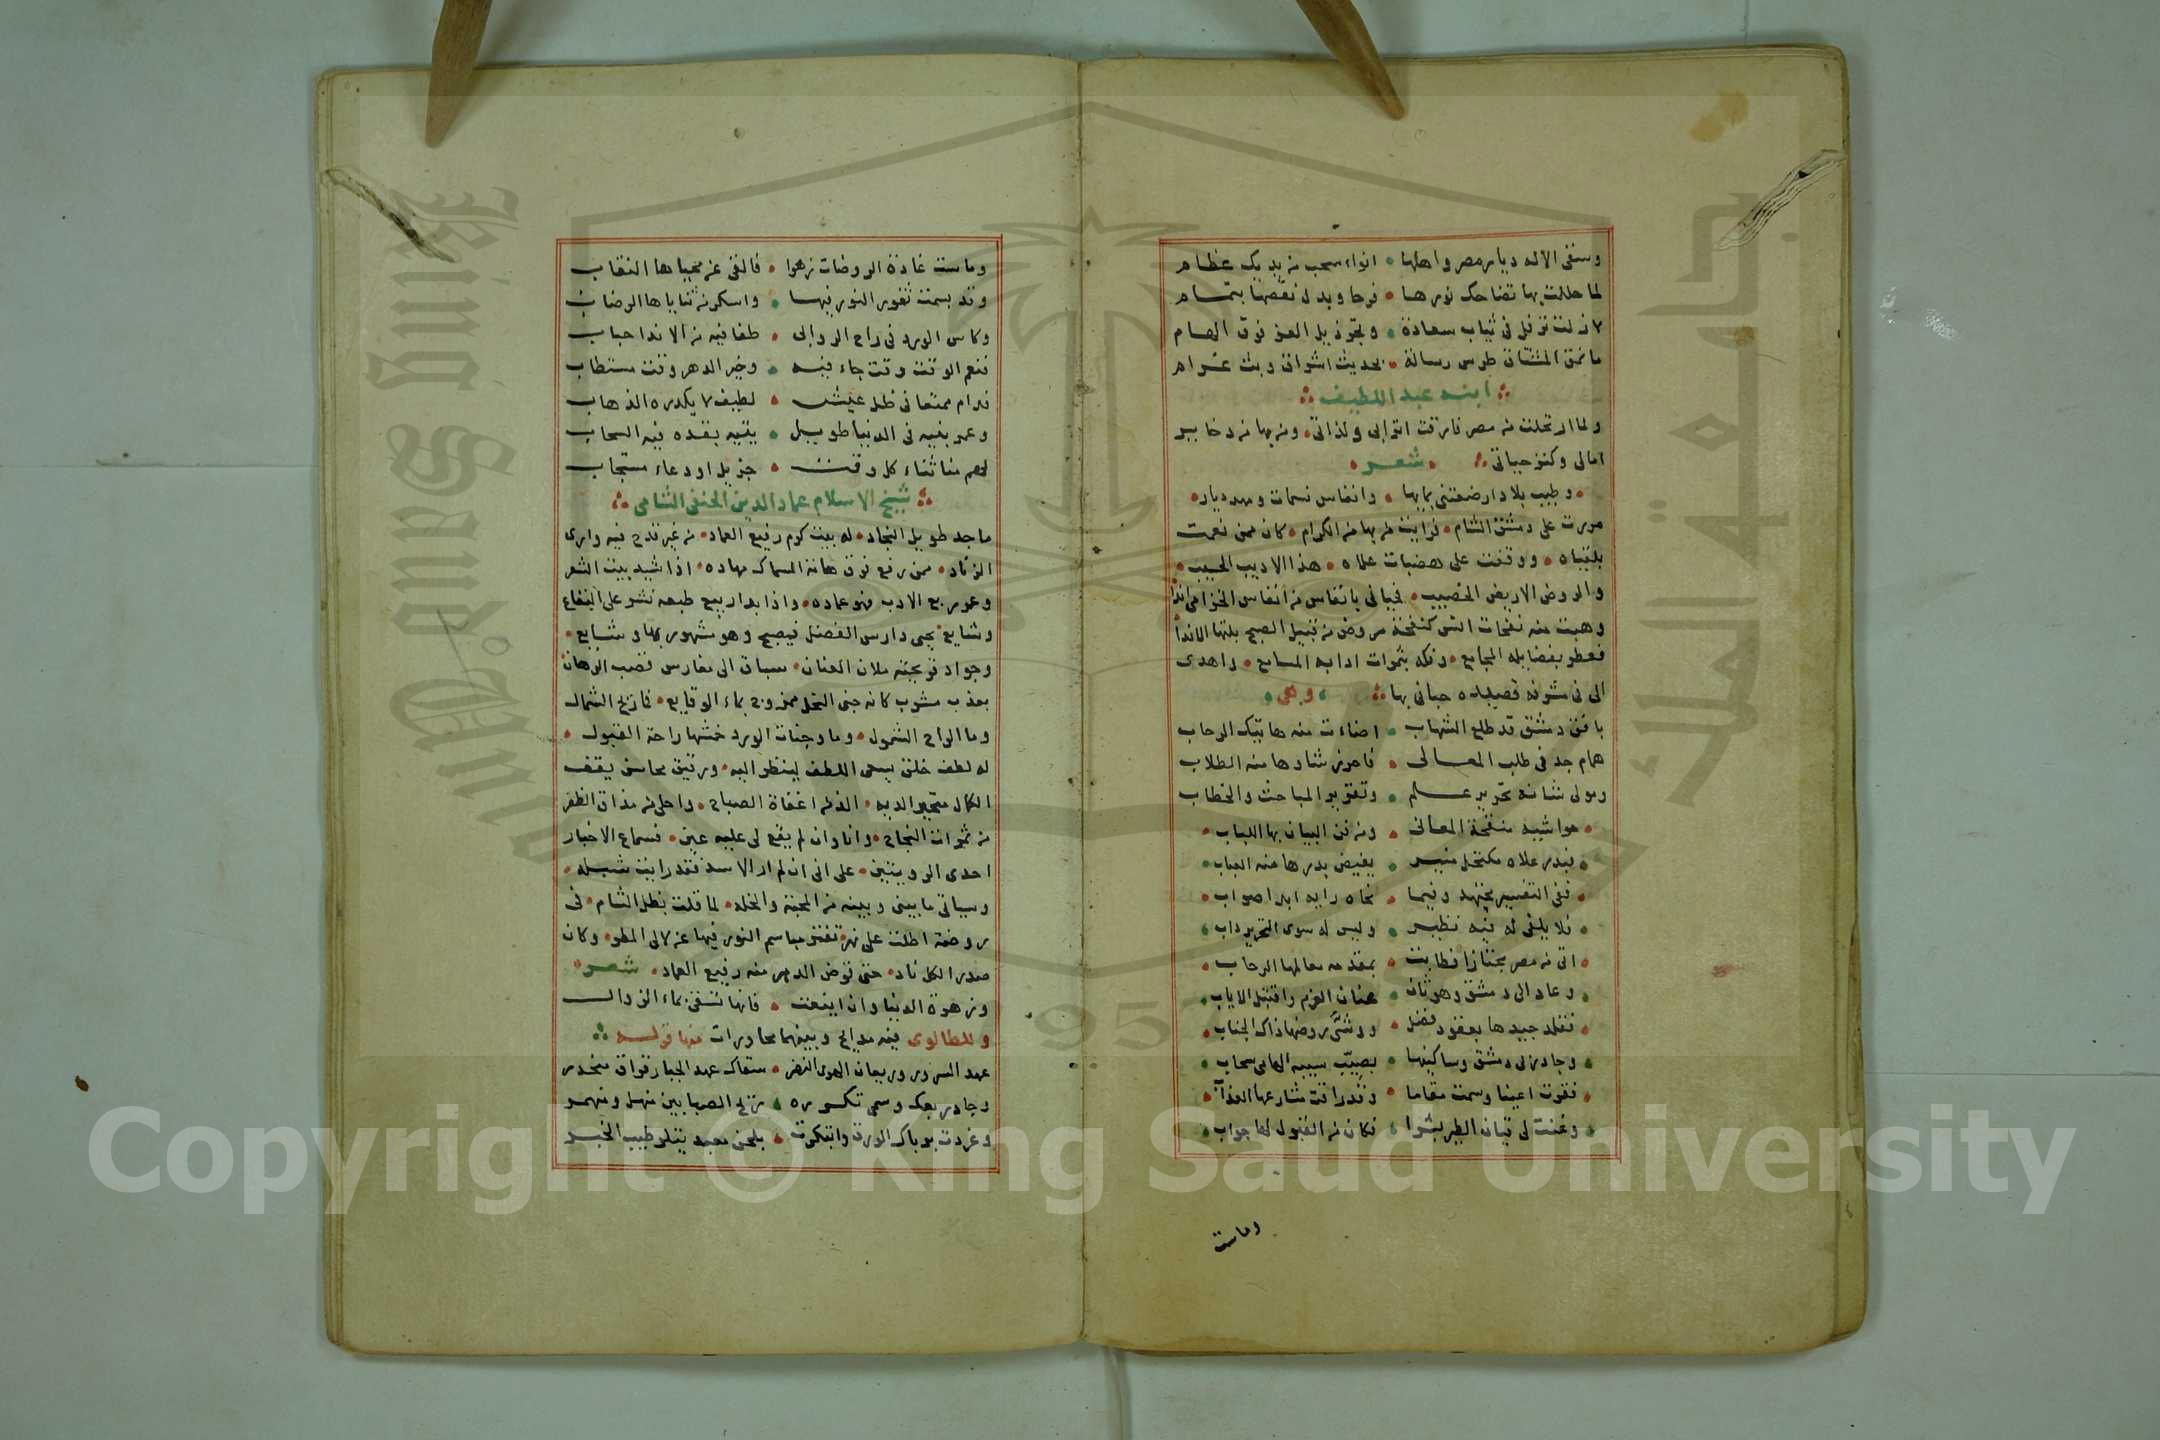 وسقى الاله ديار مصر واهلها • انواء سحب من يديك عظام
لما حللت بها تضاحك نورها • فرحا وبدل نقصها بتمام
لا زلت ترفل في ثياب سعادة • وتجر ذيل العز فوق الهام
ما نمق المشتاق طرس رسالة • بحديث اشواق وبث غرام
ابنه عبد اللطيف
ولما ارتحلت من مصر فارقت اترابي ولذاتي • ومن بها من ذخاير
امالي وكنز حياتي • شعر
• وطيب بلاد ارضعتني بمايها • وانفاس نسمات ومهد ديار •
مررت على دمشق الشام • فرايت من بها من الكرام • كان ممن نعمت
بلقياه • ووقفت على هضبات علاه • هذا الاديب الحسيب •
والروض الاريض الخصيب • فحياني بانفاس من انفاس الخزامى
وهبت منه نفحات انس كنفحة روض من قبيل الصبح بلتها الاندا
فعطر بفضايله المجامع • وفكه بثمرات ادابه المسامع • واهدى
الي في مشرفه قصيدة حياني بها • وهي •
بافق دمشق قد طلع الشهاب • اضاءت منه هاتيك الرحاب
همام جد في طلب المعالي • فاحرز شاوها منه الطلاب
ومولى شانه تحرير علم • وتقرير المباحث والخطاب
• حواشيه منقحة المعاني • ومن فن البيان بها اللباب •
• فبدر علاه مكتمل منير • يفيض بدرها منه العباب •
• ففي التفسير مجتهد وفيما • نحاه رايه ابدا صواب •
• فلا يلفى له فيه نظير • وليس له سوى التحرير داب •
• اتى من مصر مجتازا فطابت • بمقدمه معالمها الرحاب •
• وعاد الى دمشق وهو ثان • عنان العزم واقتبل الاياب •
• فقلد جيدها بعقود فضل • ووشى روضها ذاك الجناب •
• وجاد ربى دمشق وساكنيها • بصيب سيبه الهامي سحاب •
• فقرت اعينا وسمت مقاما • وقد راقت مشارعها العذاب •
• وغنت لي قيان الطير بشرا • فكان من القبول لها جواب •
وماست
وماست غادة الروضات زهوا • فالقى عن محياها النقاب
وقد بسمت ثغور النور فيها • واسكر من ثناياها الرضاب
وكاس الورد في راح الروابي • طفا فيه من الاندا حباب
فنعم الوقت وقت جاء فيه • وخير الدهر وقت مستطاب
فدام ممتعا في ظل عيش • لطيف لا يكدره الذهاب
وعمر بنيه في الدنيا طويل • يقيه بفقده فيه السحاب
لهم منا ثناء كل وقت • جزيل او دعاء مستجاب
شيخ الاسلام عماد الدين الحنفي الشامي
ماجد طويل النجاد • له بيت كرم رفيع العماد • من غير قدح فيه وارى
الزناد • ممن رفع فوق هامة السماك مهاده • اذا شيد بيت الشعر
وعمر ربع الادب فهو عماده • واذا بدا ربيع طبعه نشر على البقاع
وشايع يحيي دارس الفضل فيصبح وهو مشهور بها وشايع •
وجواد قريحته ملان العنان • سباق الى مغارس قصب الرهان
بعذب مشوب كانه جنى النحل ممزوج بماء الوقايع • فاريح الشمال
وما الراح الشمول • وما وجنات الورد خمشها راحة القبول •
له لطف خلق يسعى اللطف لينظر اليه • ورقيق محاسن يقف
الكمال متحيرا لديه • الذ من اغفاة الصباح • واحلى من مذاق الظفر
من ثمرات النجاح • وانا وان لم يقع لي عليه عين • فسماع الاخبار
احدى الرويتين • على اني ان لم ار الاسد فقد رايت شبله •
وسياتي ما بيني وبينه من المحبة والخله • لما قلت بظل الشام • في
روضة اطلت على نهر تفتر مباسم النور فيها عن لالى المطر • وكان
صدرا لكل ناد • حتى قوض الدهر منه رفيع العماد • شعر •
وزهرة الدنيا وان اينعت • فانها تسقى بماء الزوال
وللطالوي فيه مدايح وبينهما محاورات منها قوله
عهد السرور وريعان الهوى النضر • سقاك عهد الحيا رقراق منحدر
وجاد ربعك وسمي تكرره • ريح الصبا بين منهل ومنهمر
وغردت برباك الورق وابتكرت • بلحن معبد يتلو طيب الخبر